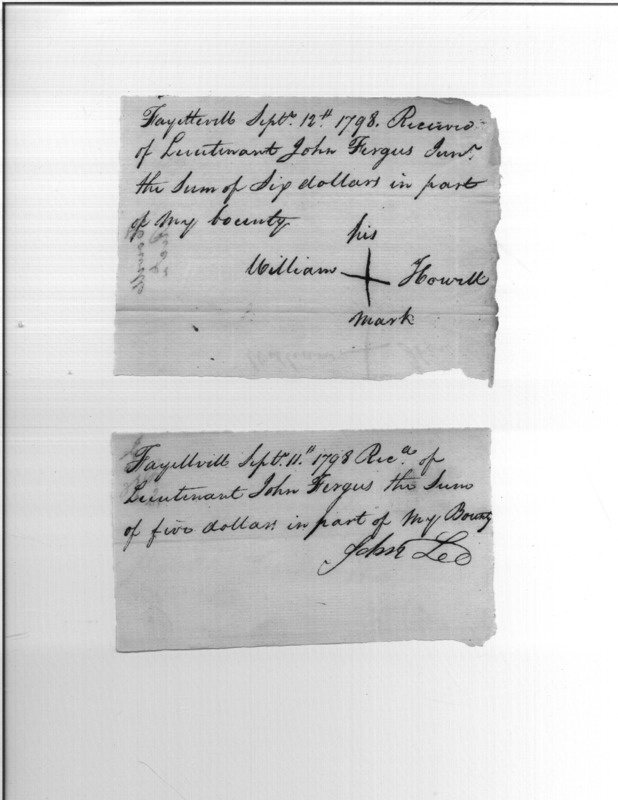 Fayettevill Septr. 12th 1798. Received
of Lieutenant John Fergus Junr.
the Sum of Six dollars in part
of My bounty
his
William + Howell
mark
Fayettvill Septr. 11th 1798 Recd. of
Lieutenant John Fergus the Sum
of five dollars in part of My Bounty
John Lee